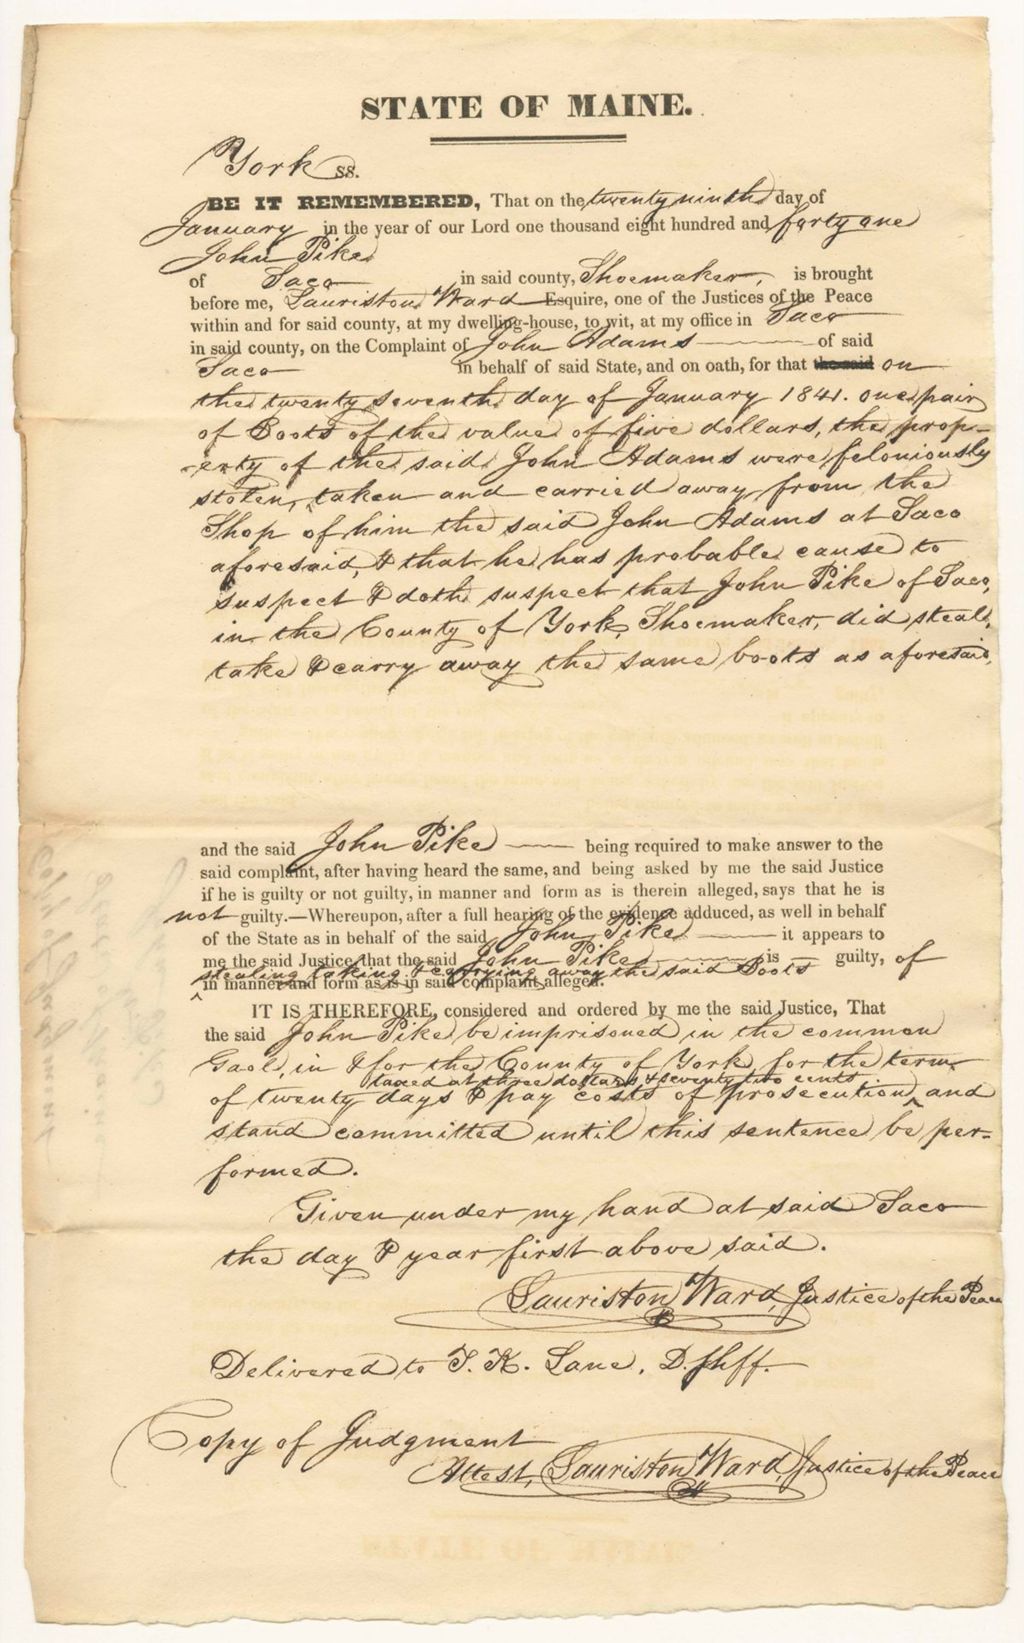 STATE OF MAINE.
York ss.
BE IT REMEMBERED, That on the twenty ninth day of
January in the year of our Lord one thousand eight hundred and forty one
John Pike
of Saco in said county, Shoemaker, is brought
before me, Lauriston Ward Esquire, one of the Justices of the Peace
within and for said county, at my dwelling-house, to wit, at my office in Saco
in said county, on the Complaint of John Adams of said
Saco in behalf of said State, and on oath, for that the said on
the twenty seventh day of January 1841. one pair
of Boots of the value of five dollars, the prop-
-erty of the said John Adams were feloniously
stolen, taken and carried away from the
Shop of him the said John Adams at Saco
aforesaid, & that he has probable cause to
suspect & doth suspect that John Pike of Saco,
in the County of York, Shoemaker, did steal,
take & carry away the same boots as aforesaid,
and the said John Pike being required to make answer to the
said complaint, after having heard the same, and being asked by me the said Justice
if he is guilty or not guilty, in manner and form as is therein alleged, says that he is
not guilty.—Whereupon, after a full hearing of the evidence adduced, as well in behalf
of the State as in behalf of the said John Pike it appears to
me the said Justice that the said John Pike is guilty, of
stealing taking & carrying away the said Boots
in manner and form as is in said complaint alleged.
IT IS THEREFORE, considered and ordered by me the said Justice, That
the said John Pike be imprisoned in the common
Gaol, in & for the County of York, for the term
taxed at three dollars & seventy two cents
of twenty days & pay costs of prosecution, and
stand committed until this sentence be per-
formed.
Given under my hand at said Saco
the day & year first above said.
Lauriston Ward, Justice of the Peace
Delivered to T. K. Lane, D. Shff.
Copy of Judgment
Attest, Lauriston Ward, Justice of the Peace